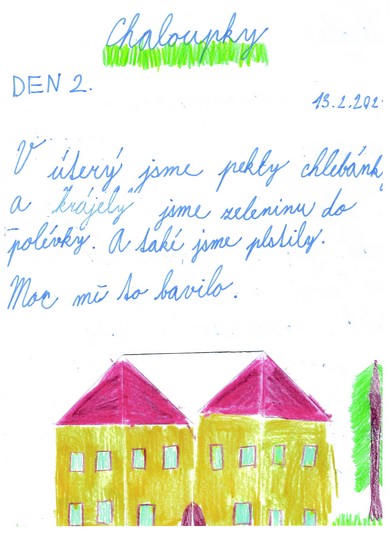 Chaloupky
DEN 2.
13.2.202
V úterý jsme pekly chlebánk
a krájely jsme zeleninu do
polévky. A také jsme plstily.
Moc mě to bavilo.